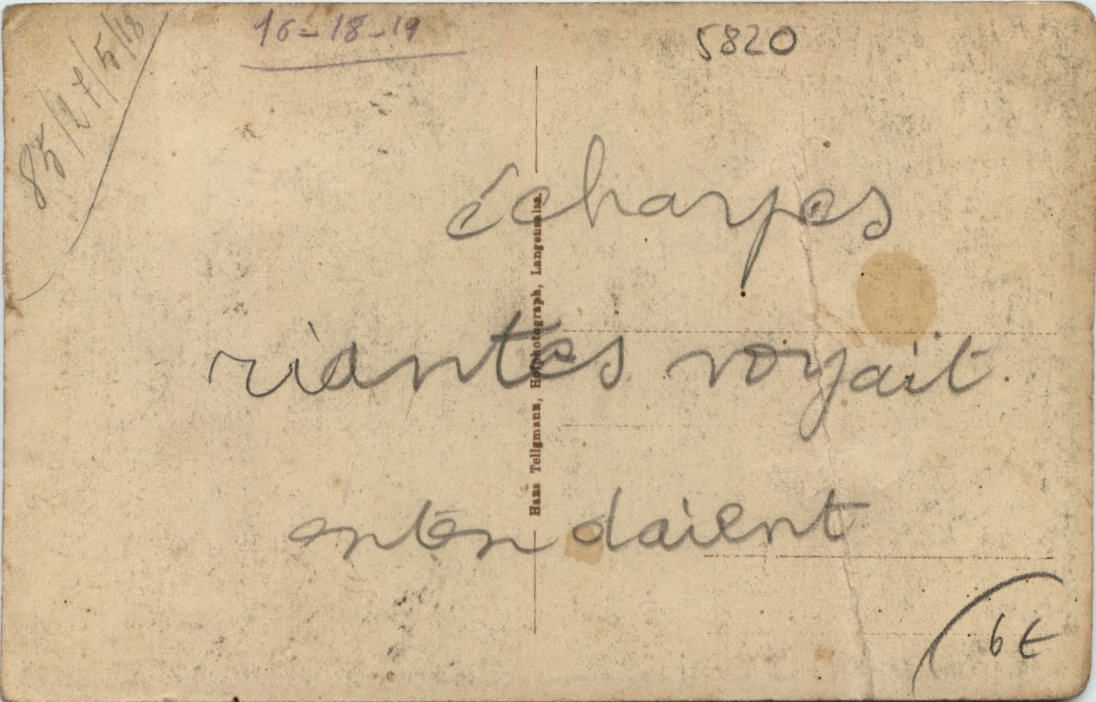 16-18-19
5820
85/27/5/18
écharpes
riantes voyait
entendaient
Hans Tellgmann, Hofphotograph, Langensalza.
6€